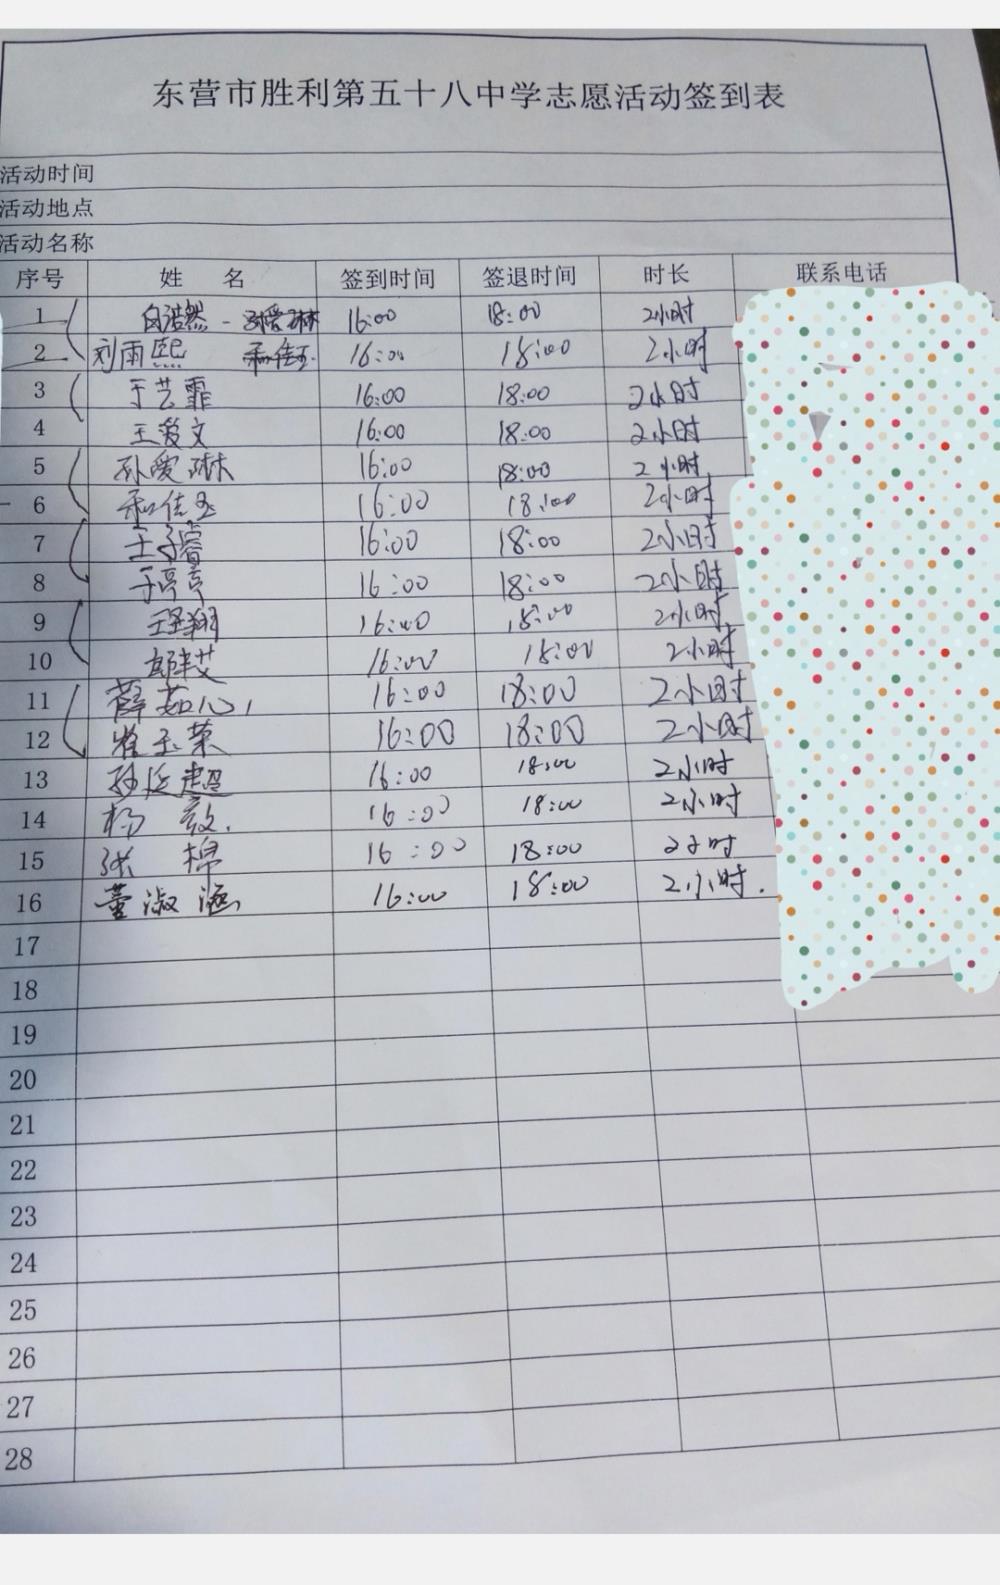 东营市胜利第五十八中学志愿活动签到表
活动时间
活动地点
活动名称
序号 姓 名 签到时间 签退时间 时长 联系电话
1 白浩然 16:00 18:00 2小时
2 刘雨熙 16:00 18:00 2小时
3 于艺霏 16:00 18:00 2小时
4 王爱文 16:00 18:00 2小时
5 孙爱琳 16:00 18:00 2小时
6 和佳玉 16:00 18:00 2小时
7 王子睿 16:00 18:00 2小时
8 于亭亭 16:00 18:00 2小时
9 16:00 18:00 2小时
10 16:00 18:00 2小时
11 薛茹心 16:00 18:00 2小时
12 崔玉荣 16:00 18:00 2小时
13 孙廷超 16:00 18:00 2小时
14 杨 16:00 18:00 2小时
15 张 棉 16:00 18:00 2小时
16 董淑涵 16:00 18:00 2小时.
17
18
19
20
21
22
23
24
25
26
27
28